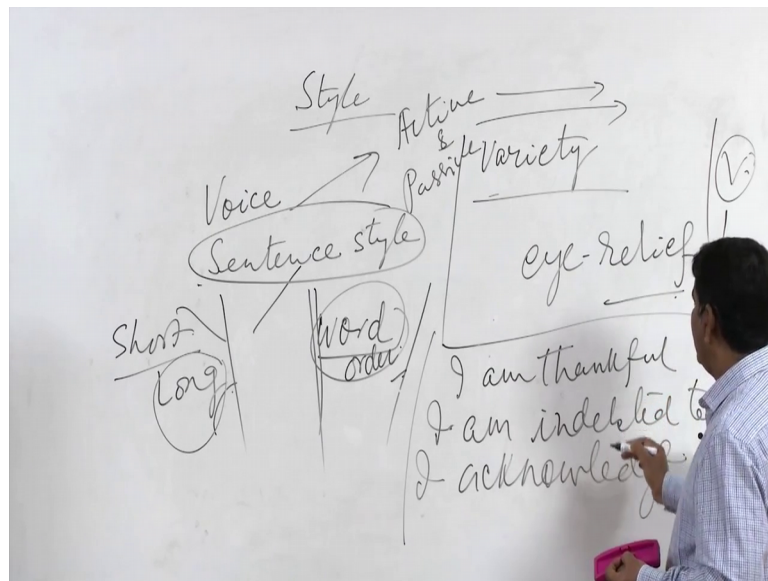 Style
Active
&
Passive
Variety
V.
Voice
Sentence style
eye-relief
Short
Long
Word
order
I am thankful
I am indebted to
I acknowledge